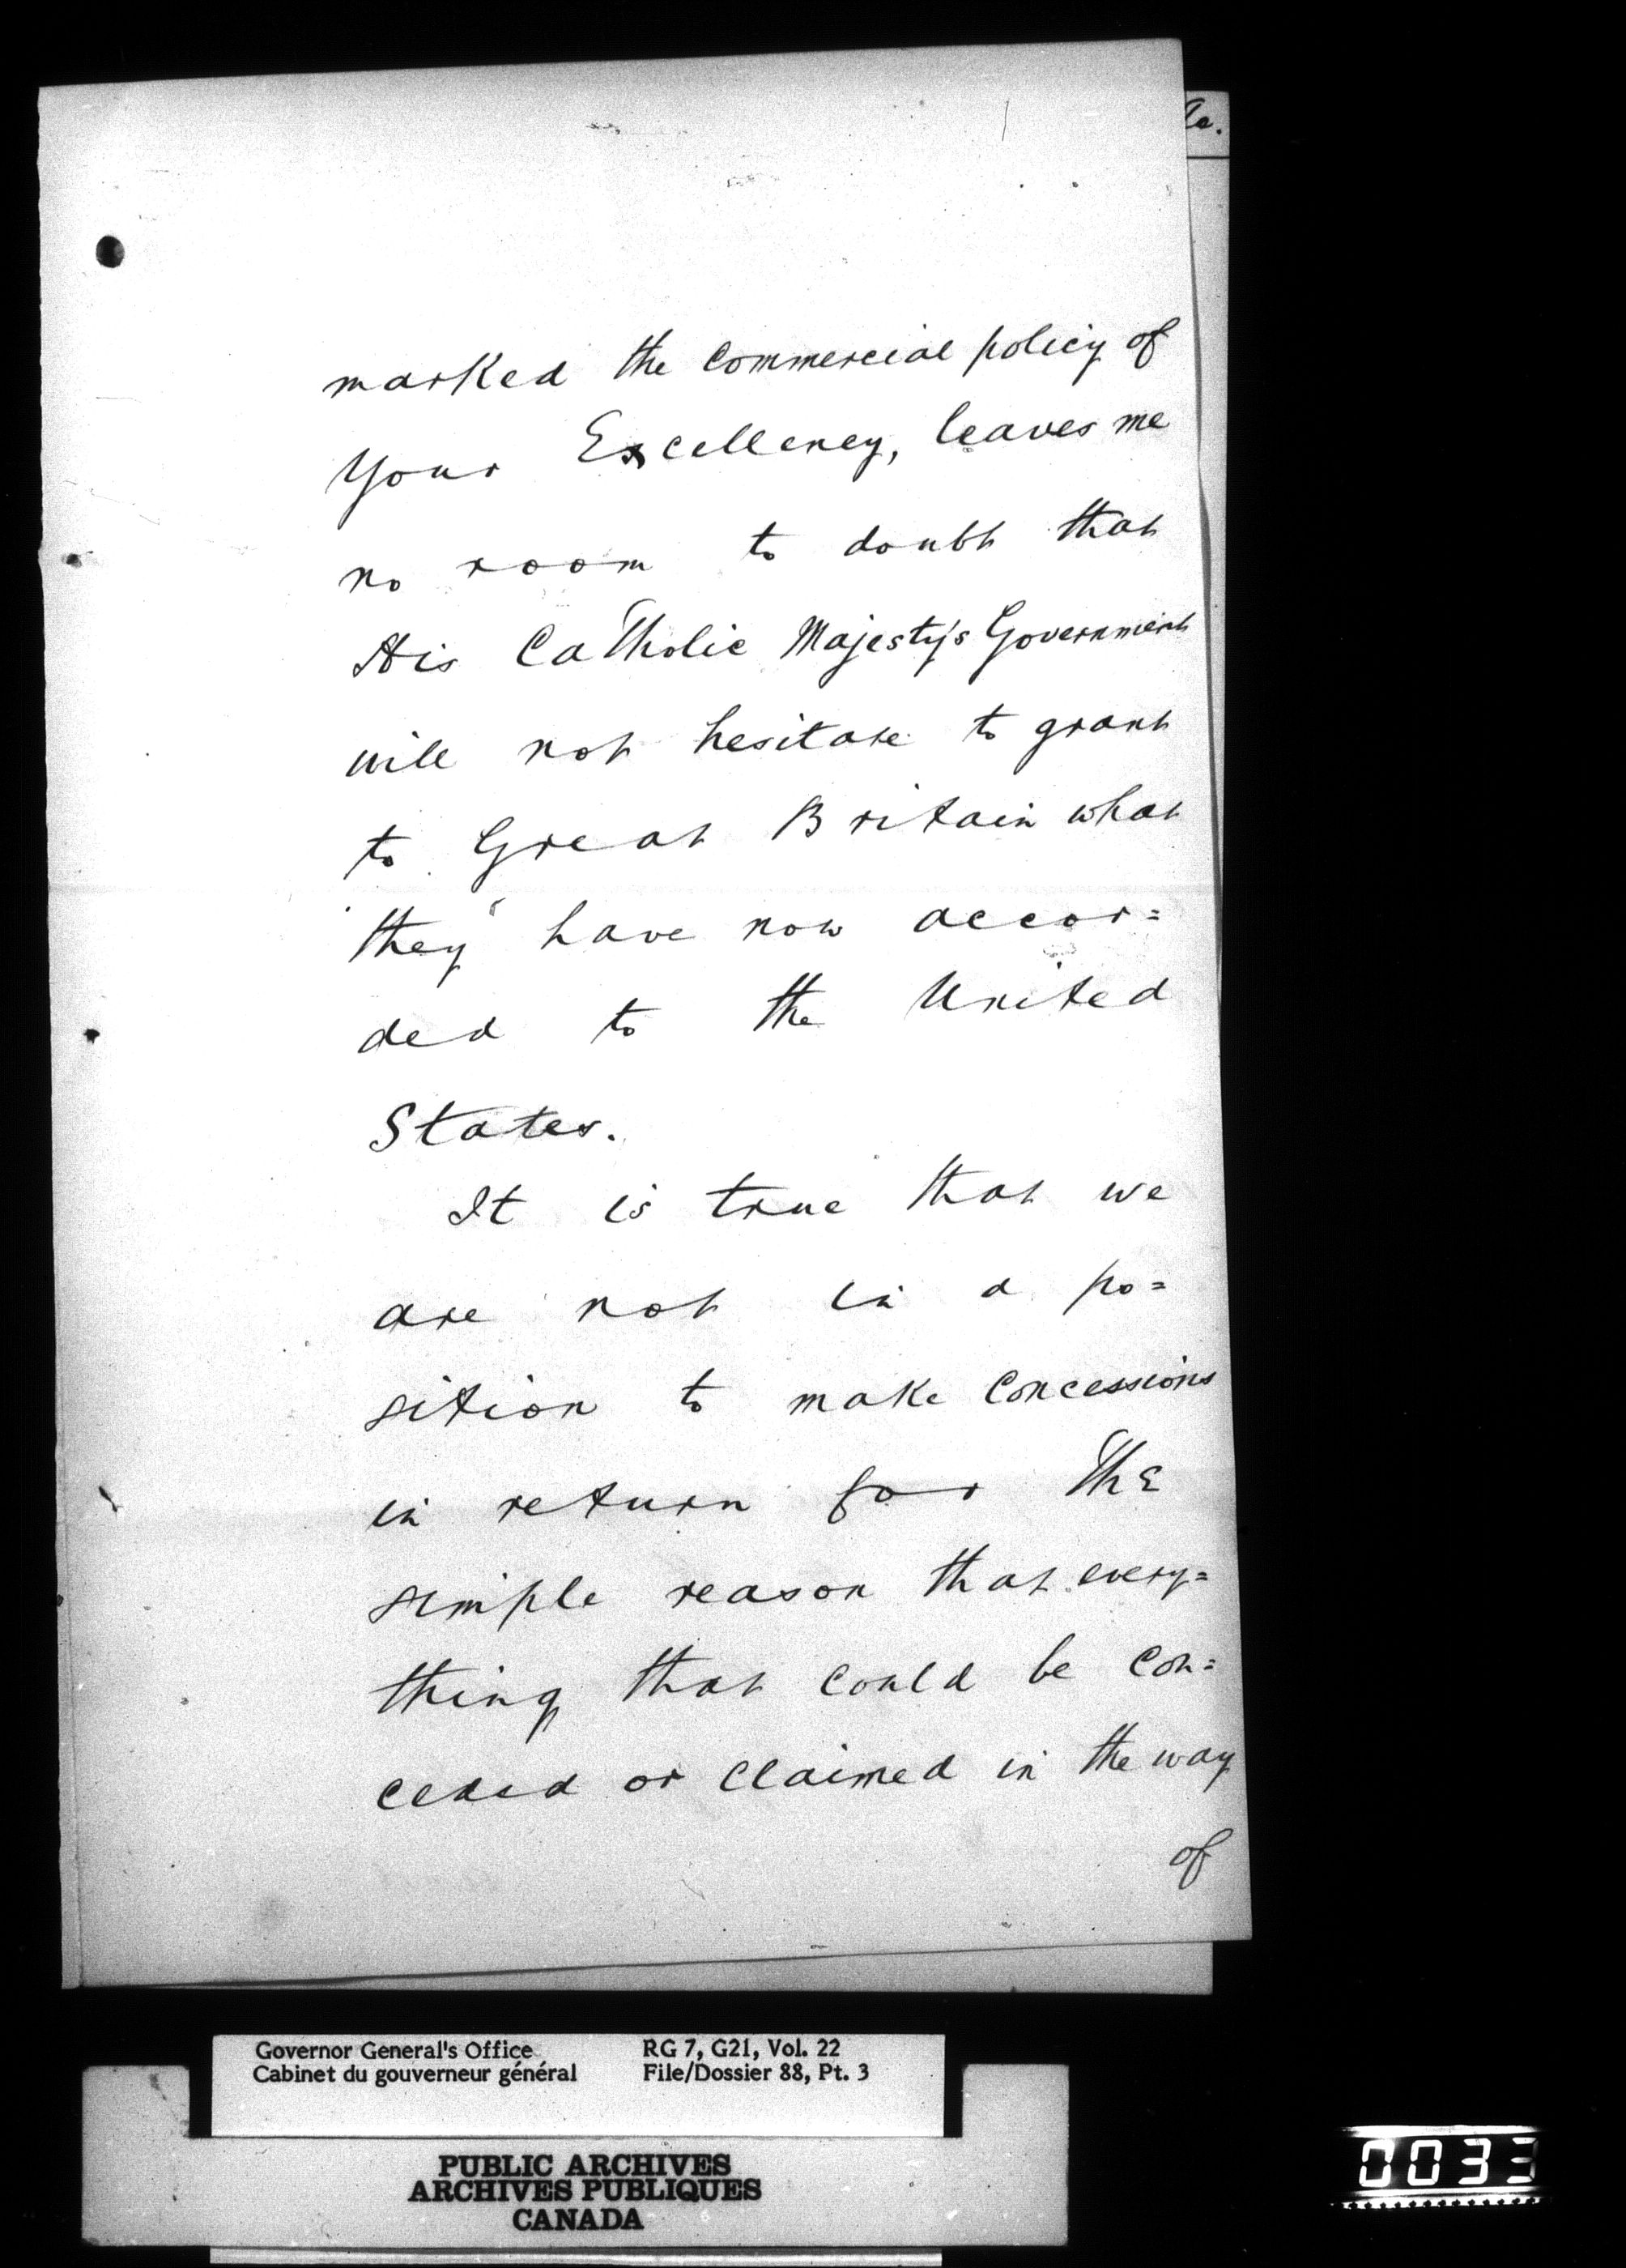 marked the commercial policy of
Your Excellency, leaves me
no room to doubt that
His Catholic Majesty's Government
will not hesitate to grant
to Great Britain what
they have now accor=
ded to the United
States.
It is true that we
are not in a po=
sition to make concessions
in return for the
simple reason that every=
thing that could be con=
ceded or claimed in the way
of
Governor General's Office
Cabinet du gouverneur général
RG 7, G21, Vol. 22
File/Dossier 88, Pt. 3
PUBLIC ARCHIVES
ARCHIVES PUBLIQUES
CANADA
0033